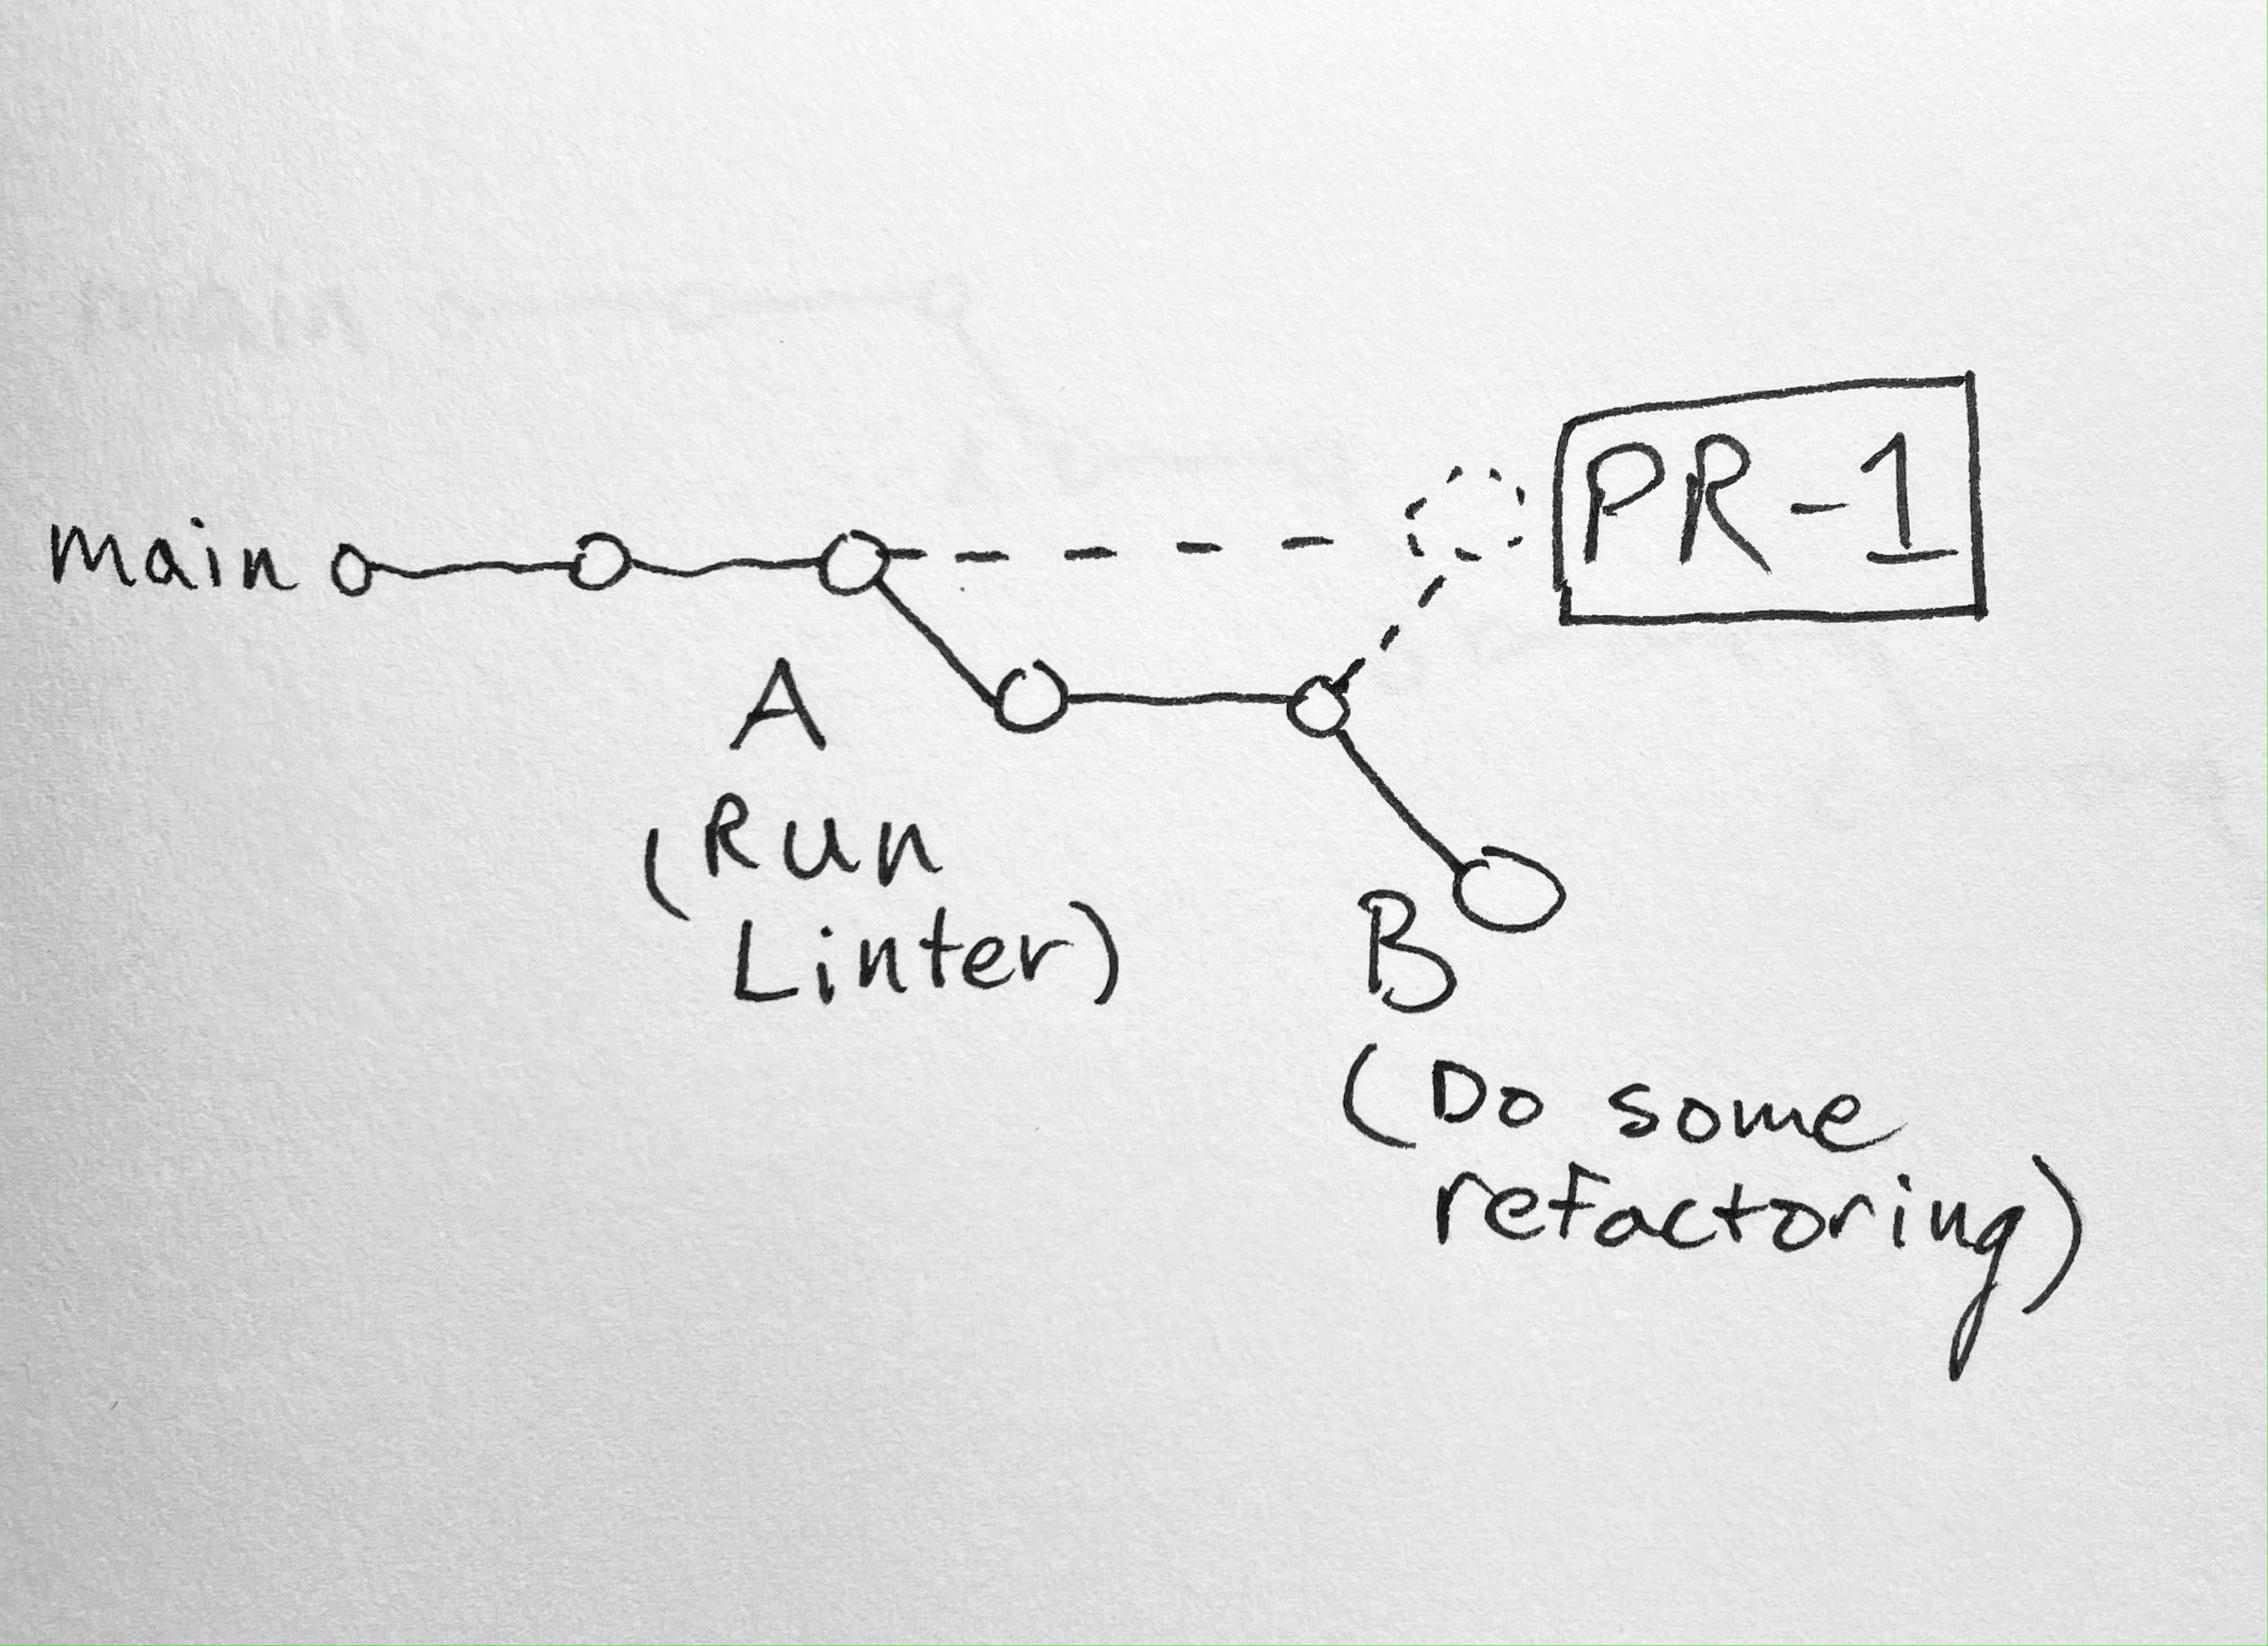 main
PR-1
A
(Run
Linter)
B
(Do some
refactoring)